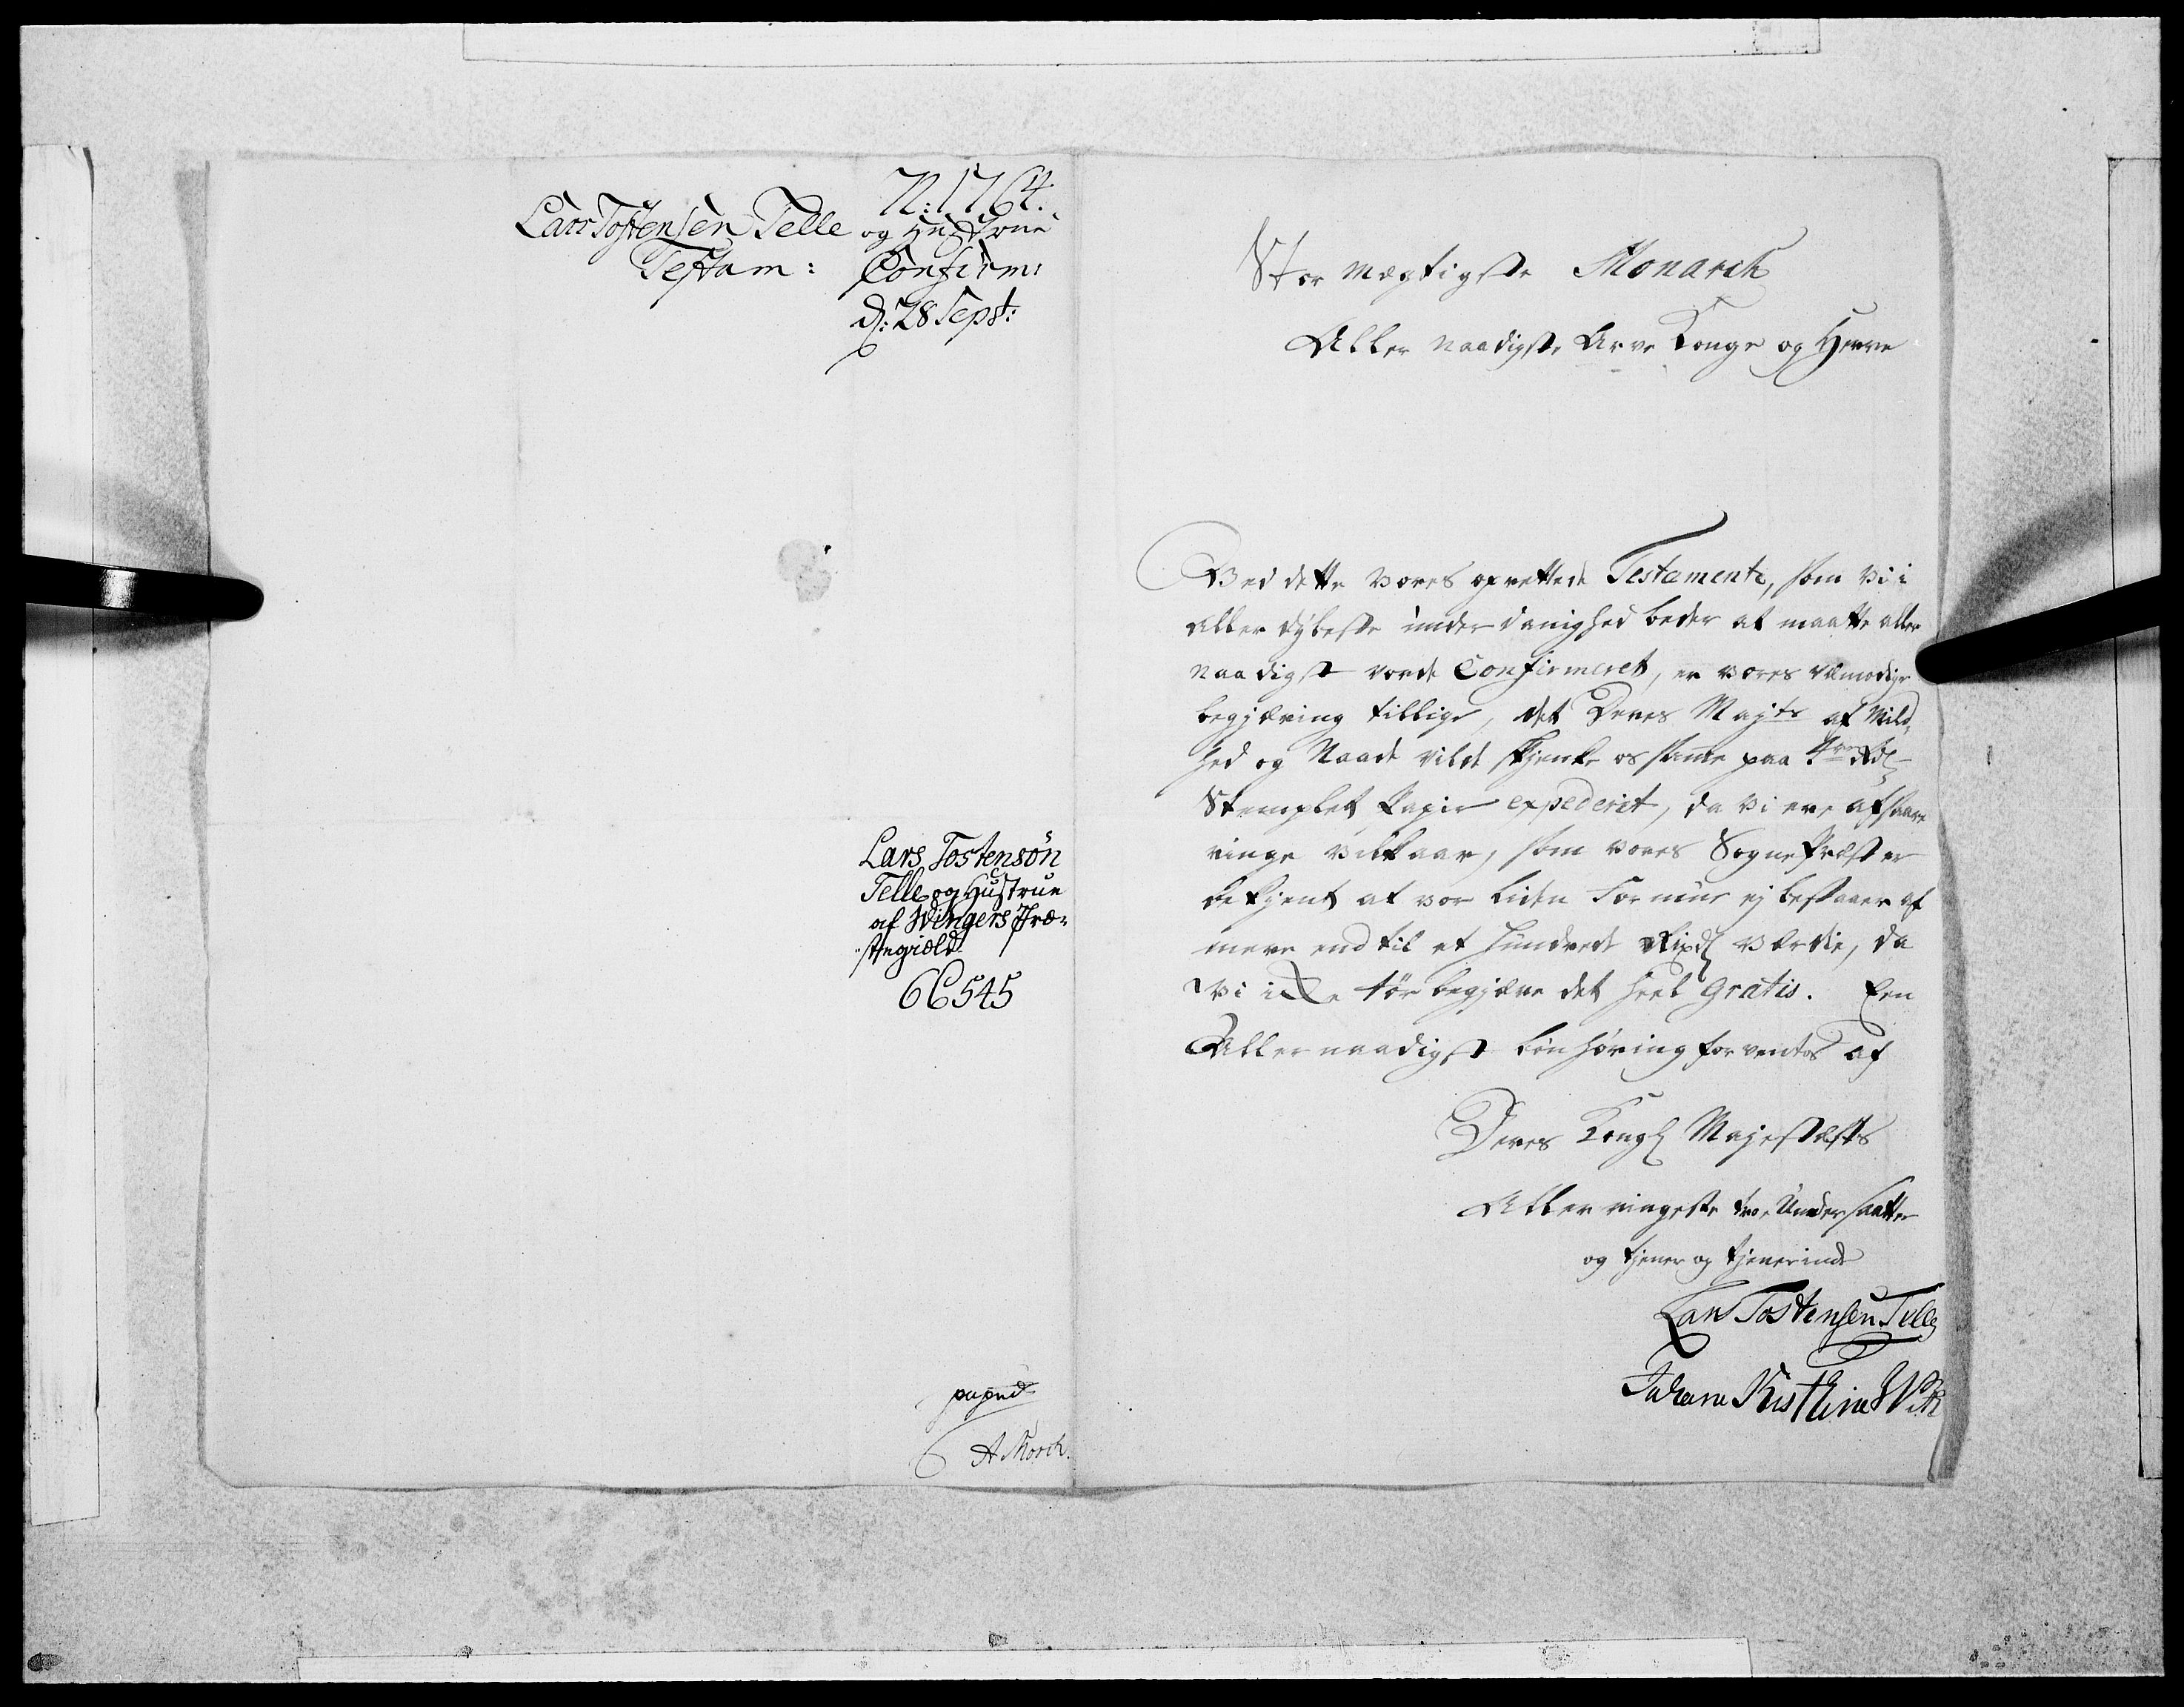 N: 1764.
Lars Tostensen Telle og Hustrue
Testam: Confirm:
d: 28 Sept:
Lars Tostensøn
Telle og Hustrue
af Wingers Præ-
stegield
66545
A Morch.
Stor Mægtigste Monarch
Aller Naadigste Arve Konge og Herre
Ved dette vores oprettede Testamente, som vi i
aller dybeste under danighed beder at maatte aller
naadigst vorde Confirmeret, er vores væmodige
begjæring tillige, det Deres Majts af Mild-
hed og Naade vilde skjenke os samme paa
Stemplet Papir expederit, da vi ere af saare
ringe vilkaar, som vores Sogne Præst er
bekjent at vor liden Formue ej bestaaer af
mere end til et hundrede Rixd værdie, da
vi ikke tør begjære det heel gratis. Een
Aller naadigst bønhøring forventes af
Deres Kongl Majestæts
Aller ringeste troe Undersaatter
og tjener og tjenerinde
Lars Tostensen Telle
Johane Kistine Vik